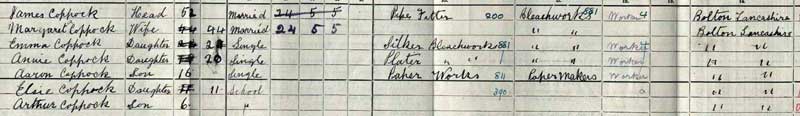 James Coppock Head 52 Married 24 5 5 Pipe Fitter 200 Bleachworks 581 Worker Bolton Lancashire
Margaret Coppock Wife 44 Married 24 5 5 " " Bolton Lancashire
Emma Coppock Daughter Single Bleachworks 581 " " Worker " "
Annie Coppock Daughter 20 Single Plater " " " " Worker " "
Aaron Coppock Son 16 Single Paper Works 511 Paper Makers Worker " "
Elsie Coppock Daughter 11 School 390 " "
Arthur Coppock Son 6 " " "